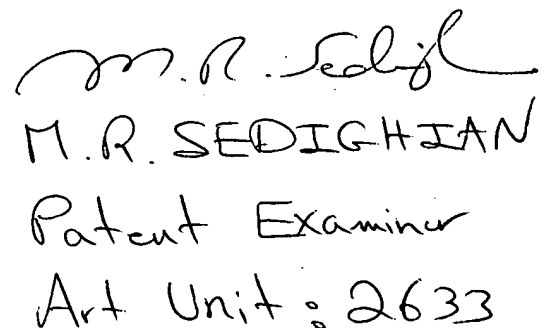 M.R. Sedigh
M.R. SEDIGHIAN
Patent Examiner
Art Unit : 2633